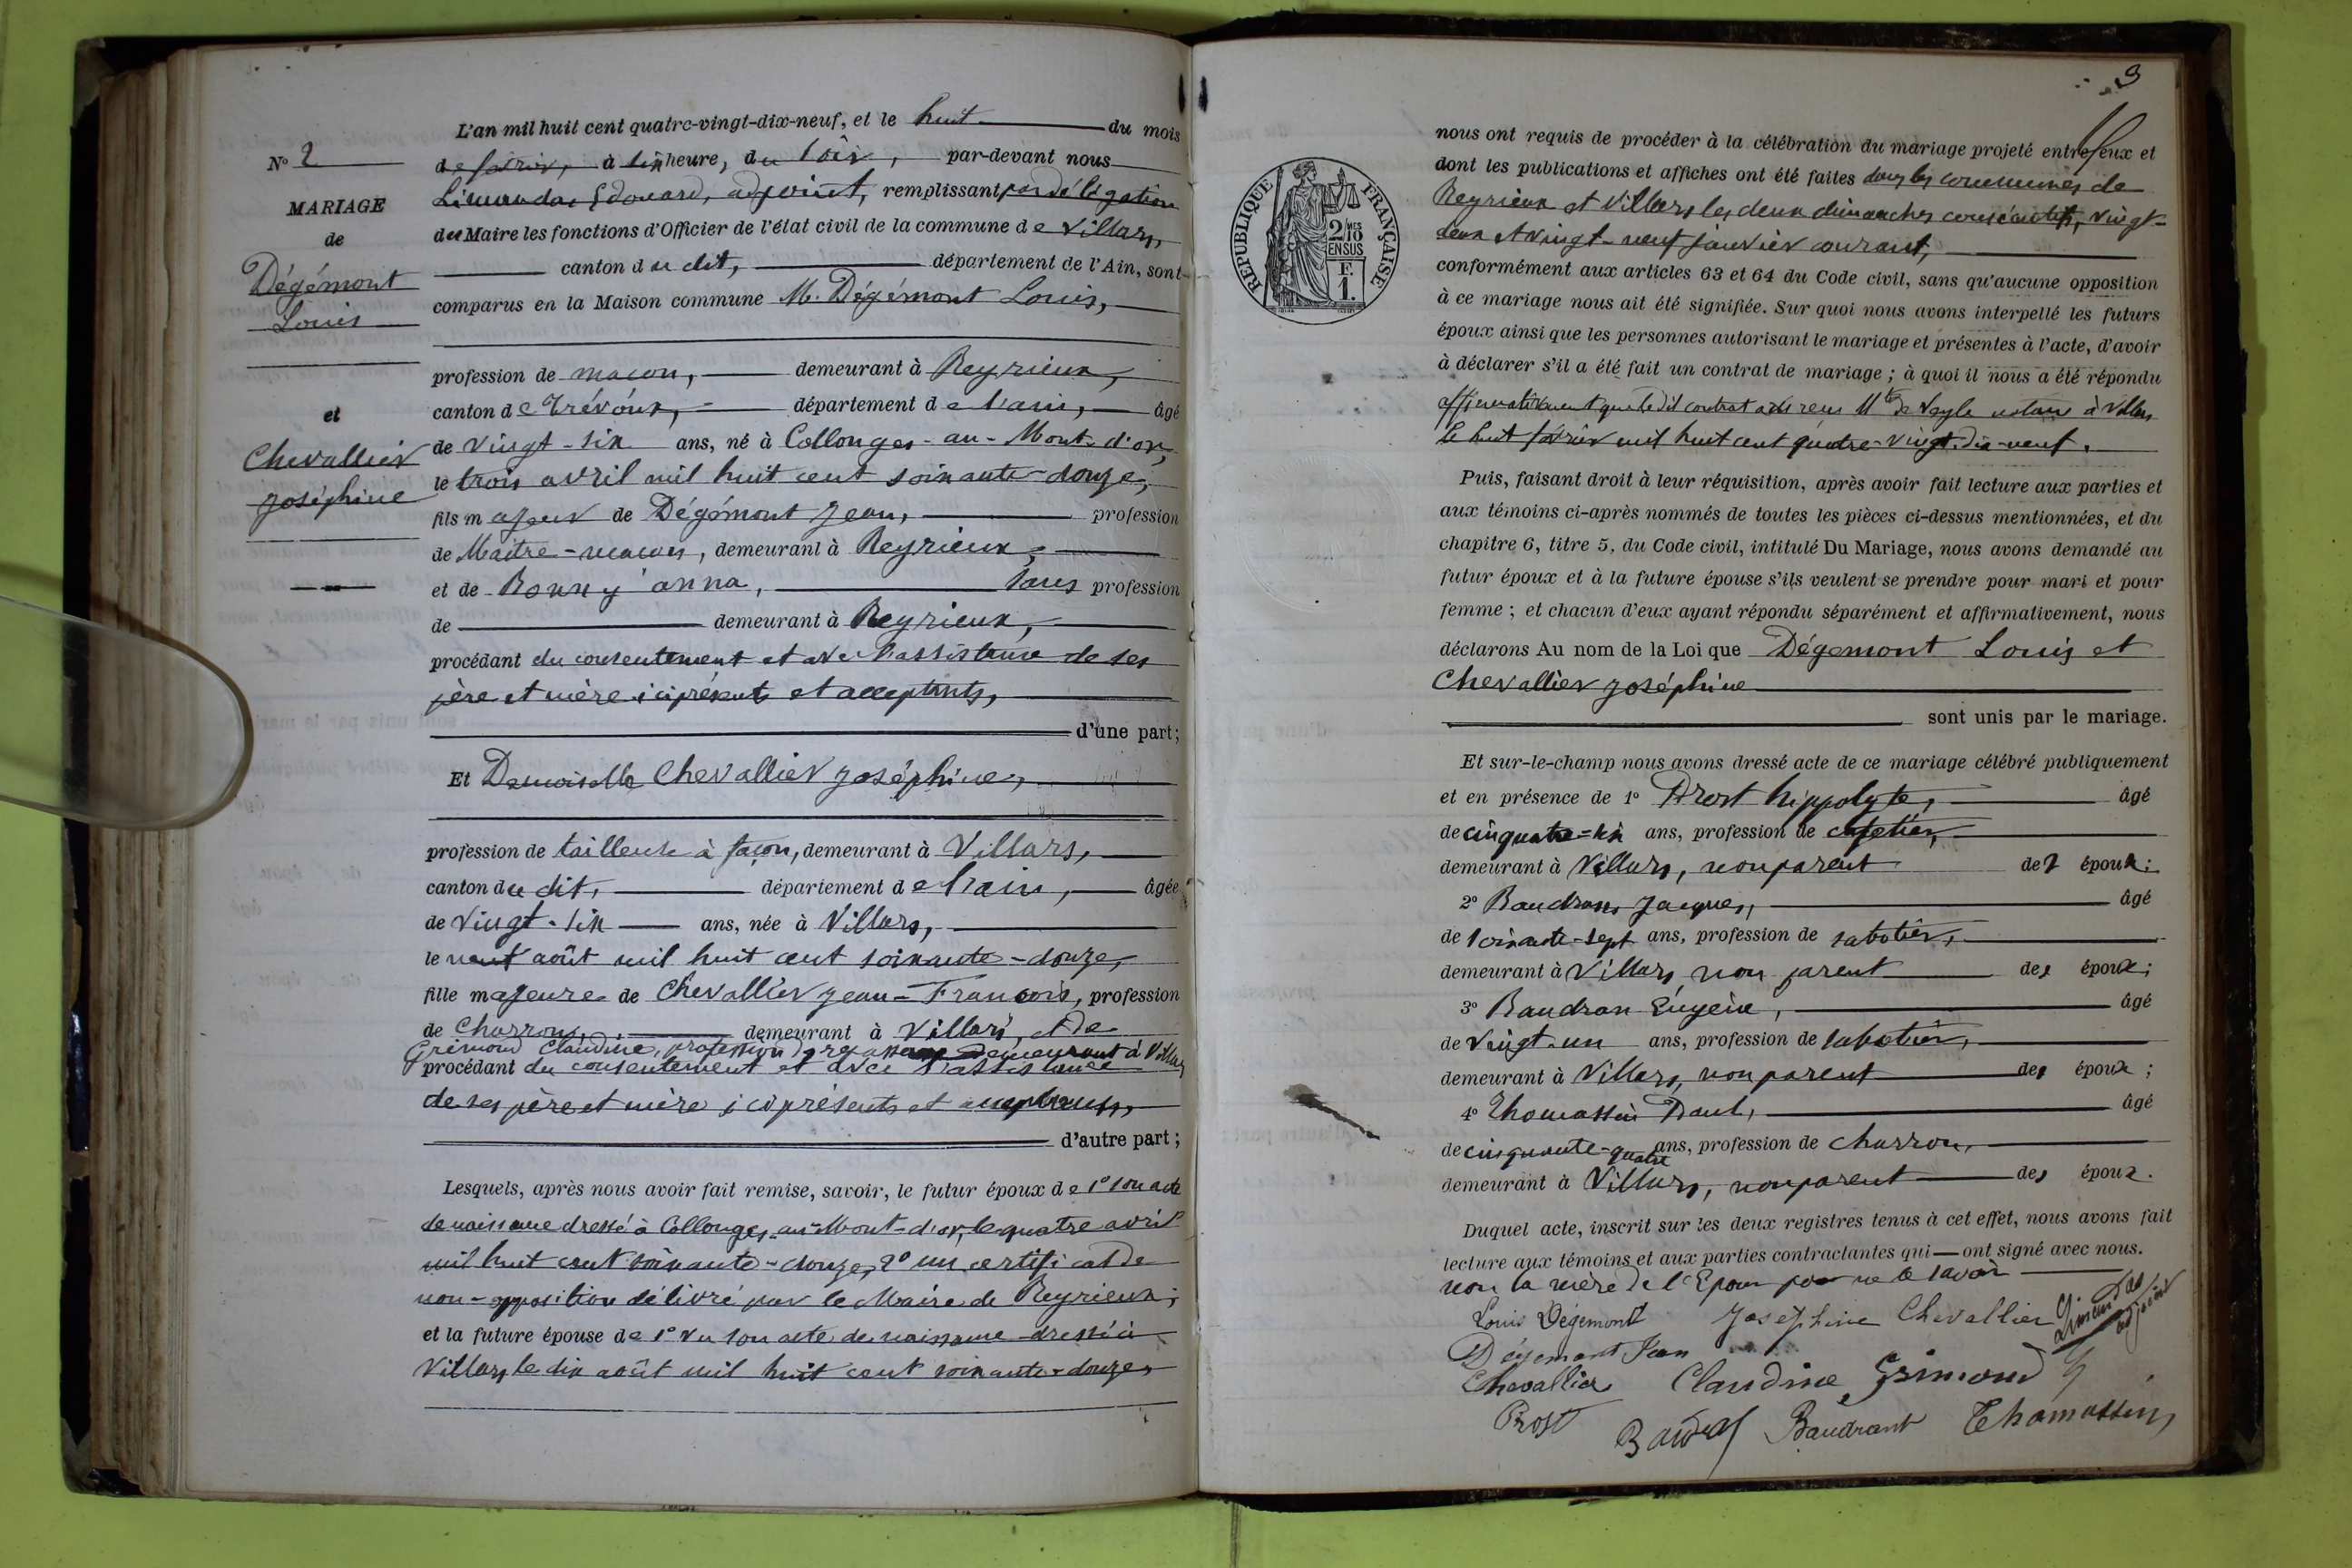 L'an mil huit cent quatre-vingt-dix-neuf, et le huit du mois
de février, à six heure, du soir, par-devant nous
Limandas Edouard, adjoint, remplissant par délégation
du Maire les fonctions d'Officier de l'état civil de la commune de Villars,
canton du dit, département de l'Ain, sont
comparus en la Maison commune M. Dégémont Louis,
profession de maçon, demeurant à Reyrieux,
canton de Trévoux, département de l'ain, âgé
de vingt-six ans, né à Collonges-au-Mont-d'or,
le trois avril mil huit cent soixante-douze,
fils majeur de Dégémont Jean, profession
de Maitre-macon, demeurant à Reyrieux,
et de Bonny anna, sans profession
de demeurant à Reyrieux,
procédant du consentement et avec l'assistance de ses
père et mère ici présents et acceptants,
d'une part;
Et Demoiselle Chevallier Joséphine,
profession de tailleuse à façon, demeurant à Villars,
canton du dit, département de l'ain, âgée
de vingt-six ans, née à Villars,
le neuf août mil huit cent soixante-douze,
fille majeure de Chevallier Jean-François, profession
de Charron, demeurant à Villars, et de
Grimond Claudine, profession demeurant à Villars
procédant du consentement et avec l'assistance
de ses père et mère ici présents et acceptants,
d'autre part;
Lesquels, après nous avoir fait remise, savoir, le futur époux de 1° son acte
de naissance dressé à Collonges-au-Mont-d'or, le quatre avril
mil huit cent soixante-douze, 2° un certificat de
non-opposition délivré par le Maire de Reyrieux;
et la future épouse de 1° son acte de naissance dressé à
Villars le dix août mil huit cent soixante-douze,
N° 2
MARIAGE
de
Dégémont
Louis
et
Chevallier
Joséphine
3
nous ont requis de procéder à la célébration du mariage projeté entre eux et
dont les publications et affiches ont été faites dans les communes de
Reyrieux et Villars les deux dimanches consécutifs, vingt-
deux et vingt-neuf janvier courant,
conformément aux articles 63 et 64 du Code civil, sans qu'aucune opposition
à ce mariage nous ait été signifiée. Sur quoi nous avons interpellé les futurs
époux ainsi que les personnes autorisant le mariage et présentes à l'acte, d'avoir
à déclarer s'il a été fait un contrat de mariage; à quoi il nous a été répondu
affirmativement que le dit contrat a été reçu notaire à Villars
le huit février mil huit cent quatre-vingt-dix-neuf.
Puis, faisant droit à leur réquisition, après avoir fait lecture aux parties et
aux témoins ci-après nommés de toutes les pièces ci-dessus mentionnées, et du
chapitre 6, titre 5, du Code civil, intitulé Du Mariage, nous avons demandé au
futur époux et à la future épouse s'ils veulent se prendre pour mari et pour
femme; et chacun d'eux ayant répondu séparément et affirmativement, nous
déclarons Au nom de la Loi que Dégemont Louis et
Chevallier Joséphine
sont unis par le mariage.
Et sur-le-champ nous avons dressé acte de ce mariage célébré publiquement
et en présence de 1° Prost hippolyte, âgé
de cinquante-six ans, profession de cafetier,
demeurant à Villars, non parent des époux;
2° Baudran Jacques, âgé
de soixante-sept ans, profession de sabotier,
demeurant à Villars, non parent des époux;
3° Baudran Eugène, âgé
de vingt-un ans, profession de sabotier,
demeurant à Villars, non parent des époux;
4° Thomassin Paul, âgé
de cinquante-quatre ans, profession de charron,
demeurant à Villars, non parent des époux.
Duquel acte, inscrit sur les deux registres tenus à cet effet, nous avons fait
lecture aux témoins et aux parties contractantes qui ont signé avec nous.
non la mère de l'Epoux pour ne le savoir
Louis Dégemont Joséphine Chevallier Limandas adjoint
Dégemont Jean
Chevallier Claudine Grimond
Prost Baudrant Thomassin
REPUBLIQUE FRANÇAISE
2/10 MES
EN SUS
F.
1.